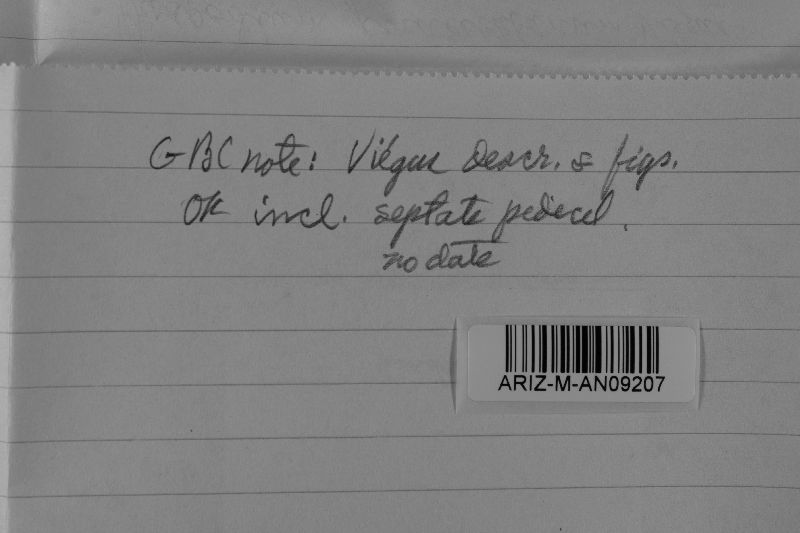 GBC note: Viégas descr. & figs.
OK incl. septate pedicel.
no date
ARIZ-M-AN09207